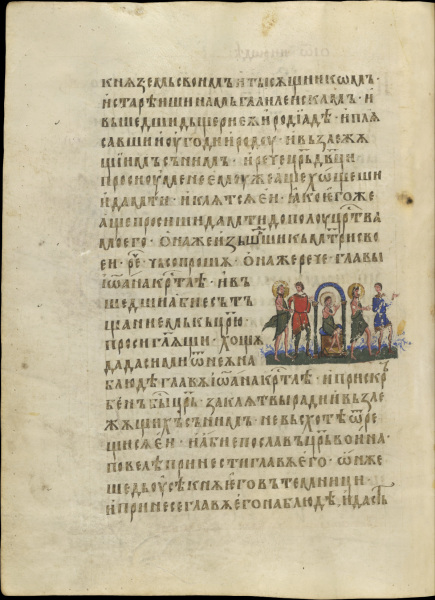 кнѧземь своимъ и тысѫщникѡмъ ·
и старѣишинамь галилеискамъ · и
вышедши дъщери еѧ иродїадѣ · и плѧ
савши и оугодни иродоу · и възлежѧ
щїимъ съ нимъ · и рече цр҃ь дв҃ци
проси оу мене емоуже аще хѡщеши
и дам ти · и клѧтсѧ еи · ꙗко егоже
аще просиши дам ти до полоу цр҃тва
моего · она же изъшⷣши къ мт҃ри сво
еи · реⷱ чьсо прошѫ · она же рече · главы
іѡана крⷭтлѣ · и въ
шедши абие съ т
щанием къ цр҃ю
проси гл҃ѧщи · хощѫ
да даси ми ѿ нею на
блюдѣ главѫ іѡана крⷭтлѣ · и прискр
бенъ бы цр҃ь · за клѧтвы ради и възле
жѧщихъ съ нимъ · не въсхотѣ ѿре
щисѧ еи · и абие пославъ цр҃ь воина ·
повелѣ принести главѫ его · ѡн же
шедь оусѣкнѫ его въ темници ·
и принесе главѫ его на блюдѣ, и дастъ